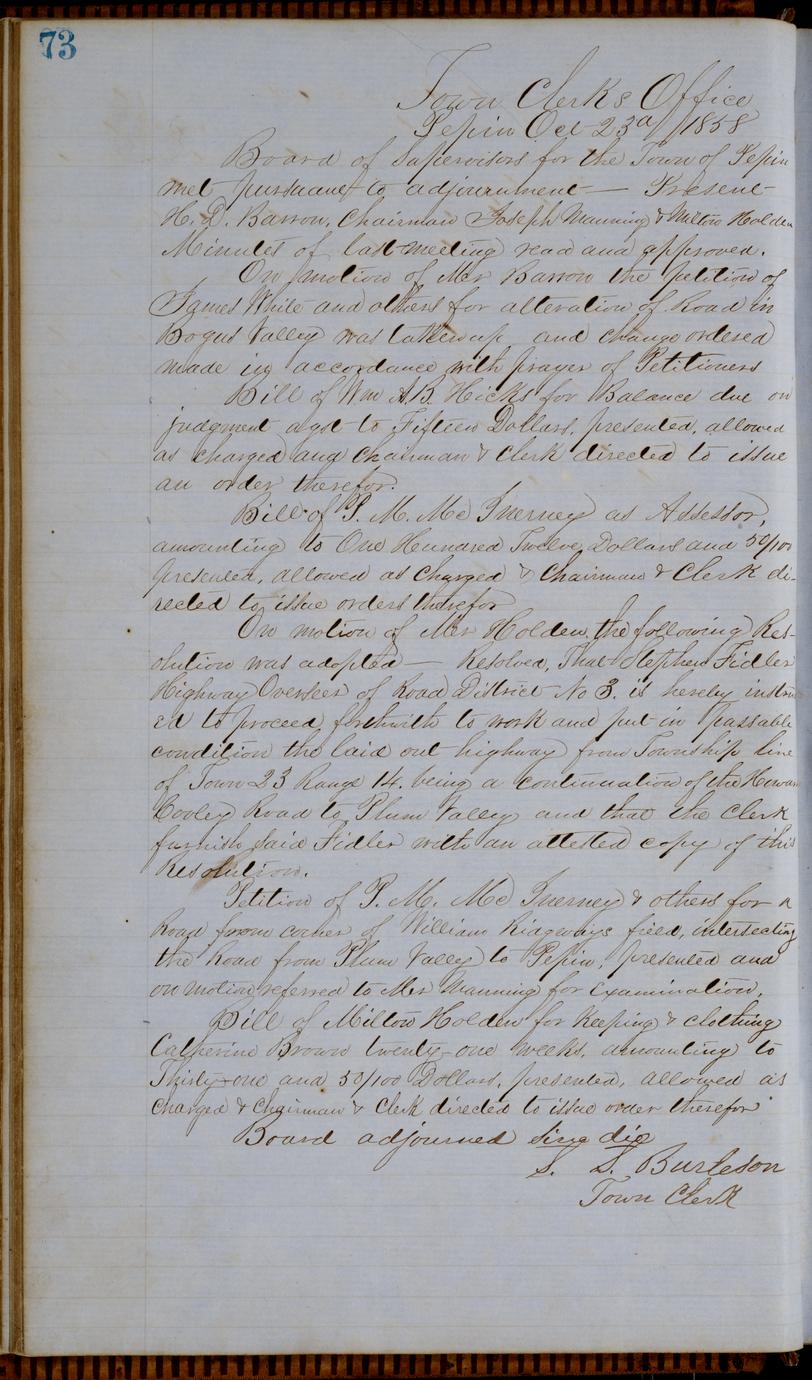 73
Town Clerks Office
Pepin Oct 23d 1858
Board of Supervisors for the Town of Pepin
met pursuant to adjournment — Present
H. D. Barron, Chairman Joseph Manning & Milton Holden
Minutes of last meeting read and approved.
On motion of Mr Barron the petition of
James White and others for alteration of Road in
Bogus Valley was taken up and change ordered
made in accordance with prayer of Petitioners
Bill of Wm A.B. Hicks for Balance due on
judgment agst to Fifteen Dollars, presented, allowed
as charged and Chairman & Clerk directed to issue
an order therefor.
Bill of P. M. Mc Inerney as Assessor,
amounting to One Hundred Twelve Dollars and 50/100
presented, allowed as charged & Chairman & Clerk di-
rected to issue orders therefor
On motion of Mr Holden, the following Res-
olution was adopted — Resolved, That Stephen Fidler
Highway Overseer of Road District No 3. is hereby instru
ed to proceed forthwith to work and put in passable
condition the laid out highway from Township line
of Town 23 Range 14. being a continuation of the
Cooley Road to Plum Valley and that the Clerk
furnish said Fidler with an attested copy of this
Resolution.
Petition of P. M. Mc Inerney & others for a
Road from corner of William Ridgeways field, intersecting
the Road from Plum Valley to Pepin, presented and
on motion referred to Mr Manning for examination.
Bill of Milton Holden for keeping & clothing
Catherine Brown twenty-one weeks, amounting to
Thirty-one and 50/100 Dollars, presented, allowed as
charged & Chairman & Clerk directed to issue order therefor
Board adjourned sine die
S. S. Burleson
Town Clerk